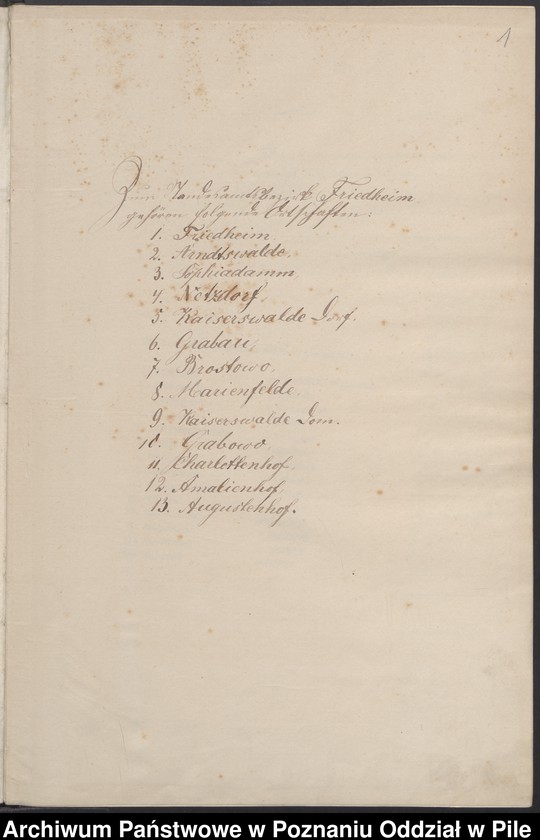 1
Zum Standesamtsbezirk Friedheim
gehören folgende Ortschaften:
1. Friedheim.
2. Arndtswalde.
3. Sophiadamm
4. Netzdorf.
5. Kaiserswalde Dorf.
6. Grabau,
7. Brostowo.
8. Marienfelde.
9. Kaiserswalde Dom.
10. Grabowo.
11. Charlottenhof.
12. Amalienhof.
13. Augustenhof.
Archiwum Państwowe w Poznaniu Oddział w Pile